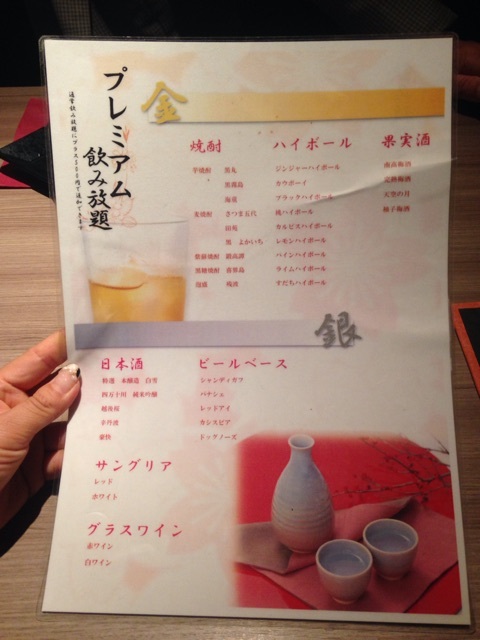 プレミアム
飲み放題
金
焼酎
芋焼酎 黒丸
黒霧島
海童
麦焼酎 さつま五代
田苑
黒 よかいち
鍛高譚
黒糖焼酎
泡盛 残波
ハイボール
ジンジャーハイボール
カウボーイ
ブラックハイボール
桃ハイボール
カルピスハイボール
レモンハイボール
パインハイボール
ライムハイボール
すだちハイボール
果実酒
南高梅酒
天空の月
柚子梅酒
銀
日本酒
特選 本醸造 白雪
四万十川 純米吟醸
越後桜
赤丹波
豪快
ビールベース
シャンディガフ
パナシェ
レッドアイ
カシスビア
ドッグノーズ
サングリア
レッド
ホワイト
グラスワイン
赤ワイン
白ワイン